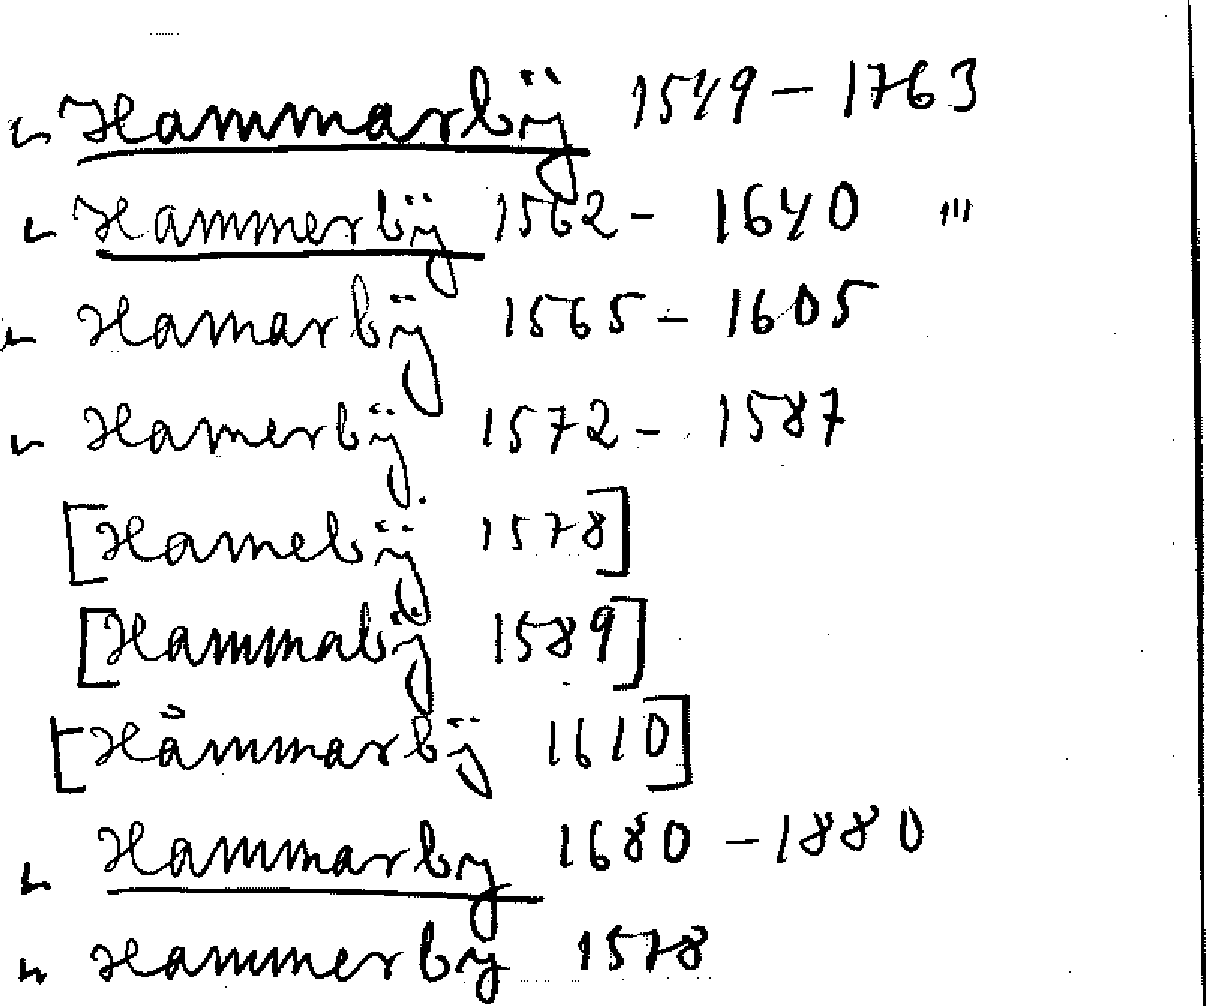 Hammarbÿ 1549 – 1763
Hammerbÿ 1562 – 1640 "'
Hamarbÿ 1565 – 1605
Hamerbÿ 1572 – 1587
[Hamebÿ 1578]
[Hammabÿ 1589]
[Håmmarbÿ 1610]
Hammarby 1680 – 1880
Hammerby 1578